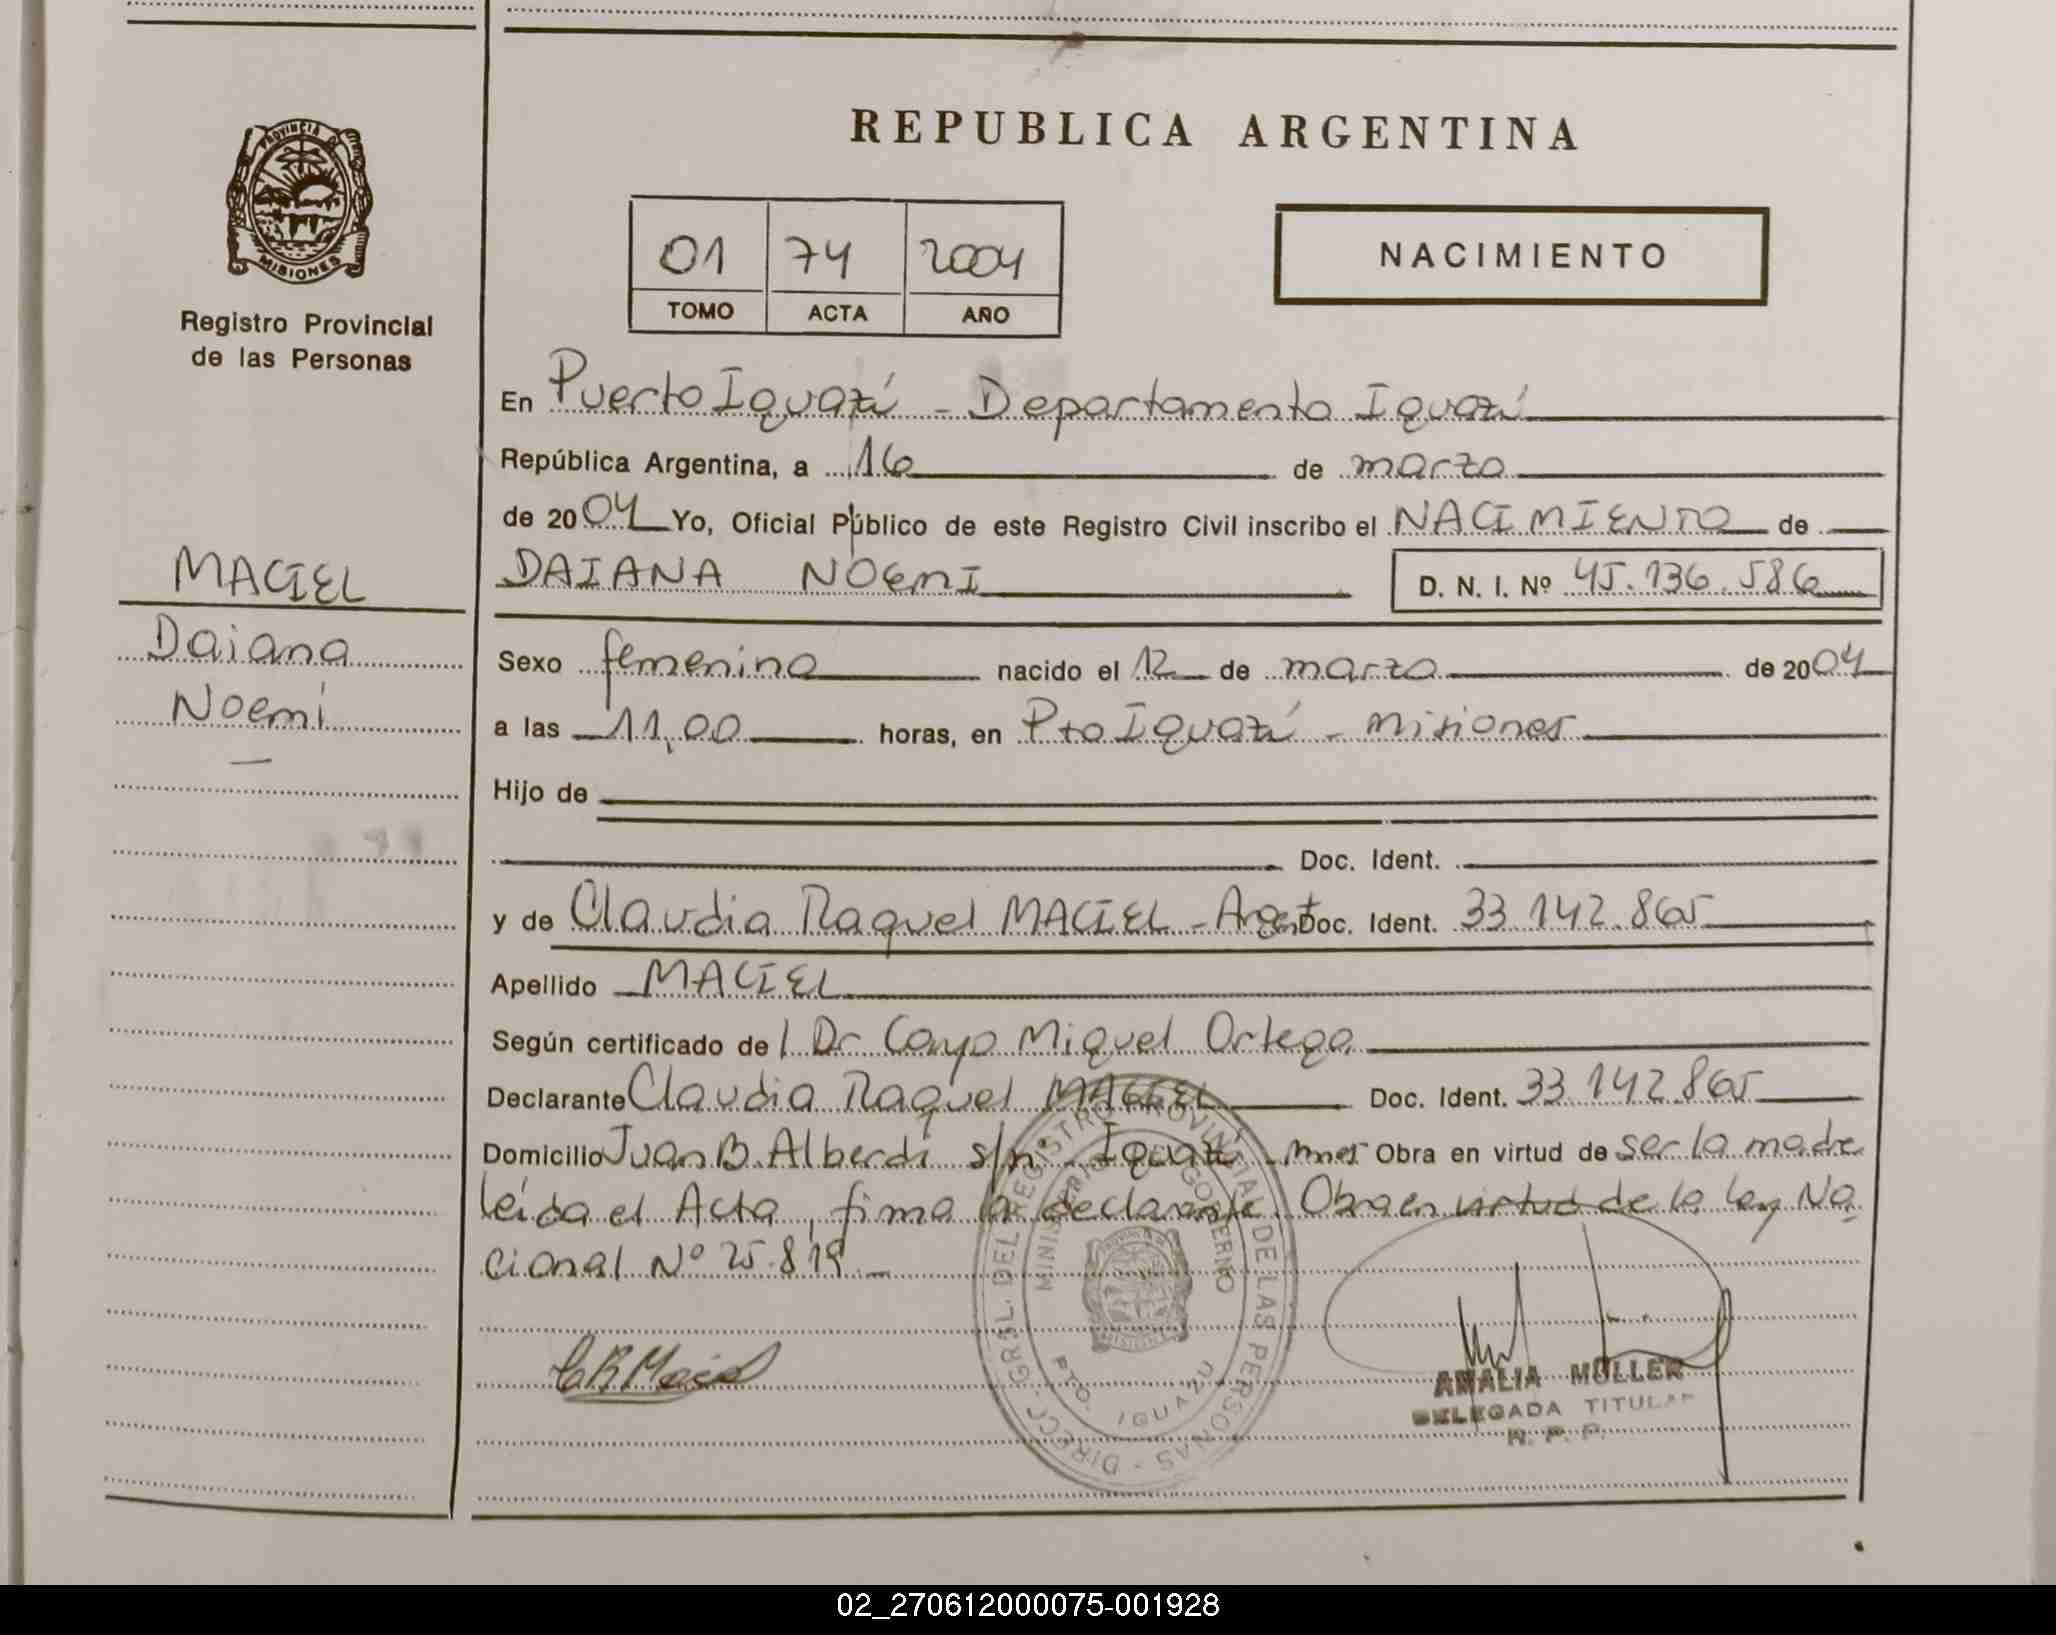 REPUBLICA ARGENTINA
PROVINCIA DE
MISIONES
Registro Provincial
de las Personas
01 74 2004
TOMO ACTA AÑO
NACIMIENTO
En Puerto Iguazú - Departamento Iguazú
República Argentina, a 16 de marzo
de 2004 Yo, Oficial Público de este Registro Civil inscribo el NACIMIENTO de
DAIANA NOEMI D. N. I. Nº 45.136.586
MACIEL
Daiana
Noemi
Sexo femenino nacido el 12 de marzo de 2004
a las 11,00 horas, en Pto Iguazú - Misiones
Hijo de
Doc. Ident.
y de Claudia Raquel MACIEL - Argent Doc. Ident. 33.142.865
Apellido MACIEL
Según certificado de l Dr Miguel Ortega
Declarante Claudia Raquel MACIEL Doc. Ident. 33.142.865
Domicilio Juan B. Alberdi s/nº Iguazú - Mnes Obra en virtud de ser la madre
leída el Acta, firma la declarante. Obra en virtud de la ley Na
cional Nº 25.819 -
DIRECC. GRAL. DEL REGISTRO PROVINCIAL DE LAS PERSONAS -
GOBIERNO
PTO. IGUAZU
AMALIA MÜLLER
DELEGADA TITULAR
R. P. P.
02_270612000075-001928